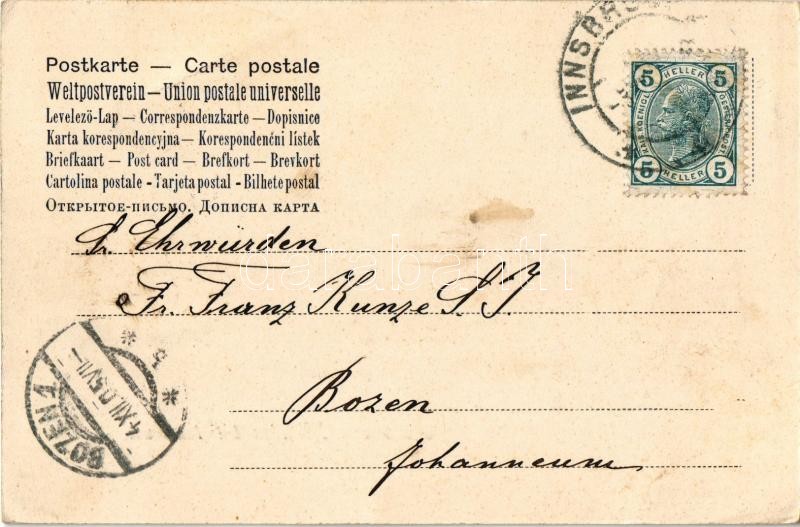 Postkarte — Carte postale
Weltpostverein — Union postale universelle
Levelező-Lap — Correspondenzkarte — Dopisnice
Karta korespondencyjna — Korespondenční lístek
Briefkaart — Post card — Brefkort — Brevkort
Cartolina postale - Tarjeta postal - Bilhete postal
Открытое-письмо. Дописна карта
INNSBRU
5 HELLER 5
5 HELLER 5
Sr. Ehrwürden
Fr. Franz Kunze S. J.
Bozen
Johanneum
BOZEN 1
4.XII.05.VII-
* 3 *
darabanth